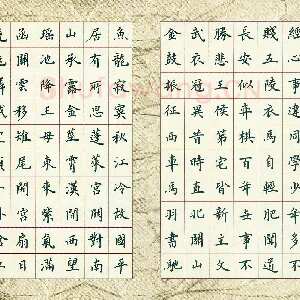 經心事違同學少年多不
賤五陵衣馬自輕肥聞道
長安似弈棋百年世事不
勝悲王侯第宅皆新主文
武衣冠異昔時直北關山
金鼓振征西車馬羽書馳
魚龍寂寞秋江冷故國平
居有所思蓬萊宮闕對南
山承露金莖霄漢間西望
瑤池降王母東來紫氣滿
函關雲移雉尾開宮扇日